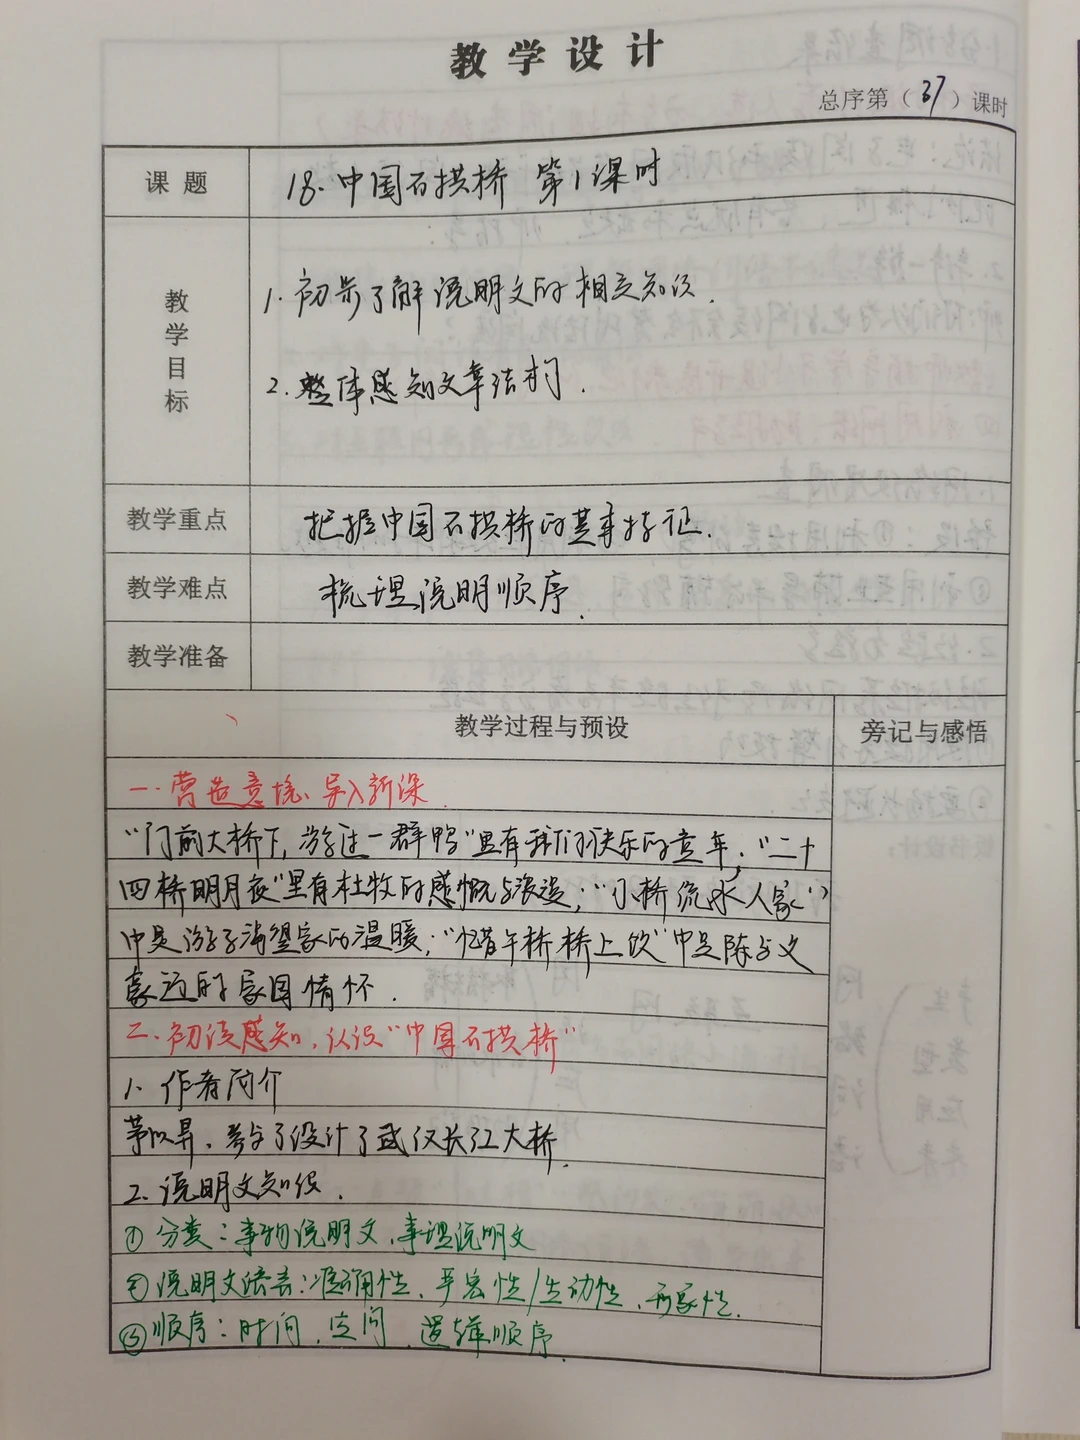 教学设计
总序第（37）课时
课题
18. 中国石拱桥 第1课时
教学目标
1. 初步了解说明文的相关知识.
2. 整体感知文章结构.
教学重点
把握中国石拱桥的基本特征.
教学难点
梳理说明顺序.
教学准备
教学过程与预设
旁记与感悟
一. 营造意境、导入新课.
“门前大桥下, 游过一群鸭”里有我们快乐的童年; “二十
四桥明月夜”里有杜牧的感慨与浪漫; “小桥流水人家”
中是游子渴望家的温暖; “忆昔午桥桥上饮”中是陈与义
豪迈的家国情怀.
二. 初读感知, 认识“中国石拱桥”
1. 作者简介
茅以昇, 参与了设计了武汉长江大桥.
2. 说明文知识.
① 分类: 事物说明文, 事理说明文
② 说明文语言: 准确性、严密性/生动性、形象性.
③ 顺序: 时间、空间、逻辑顺序.